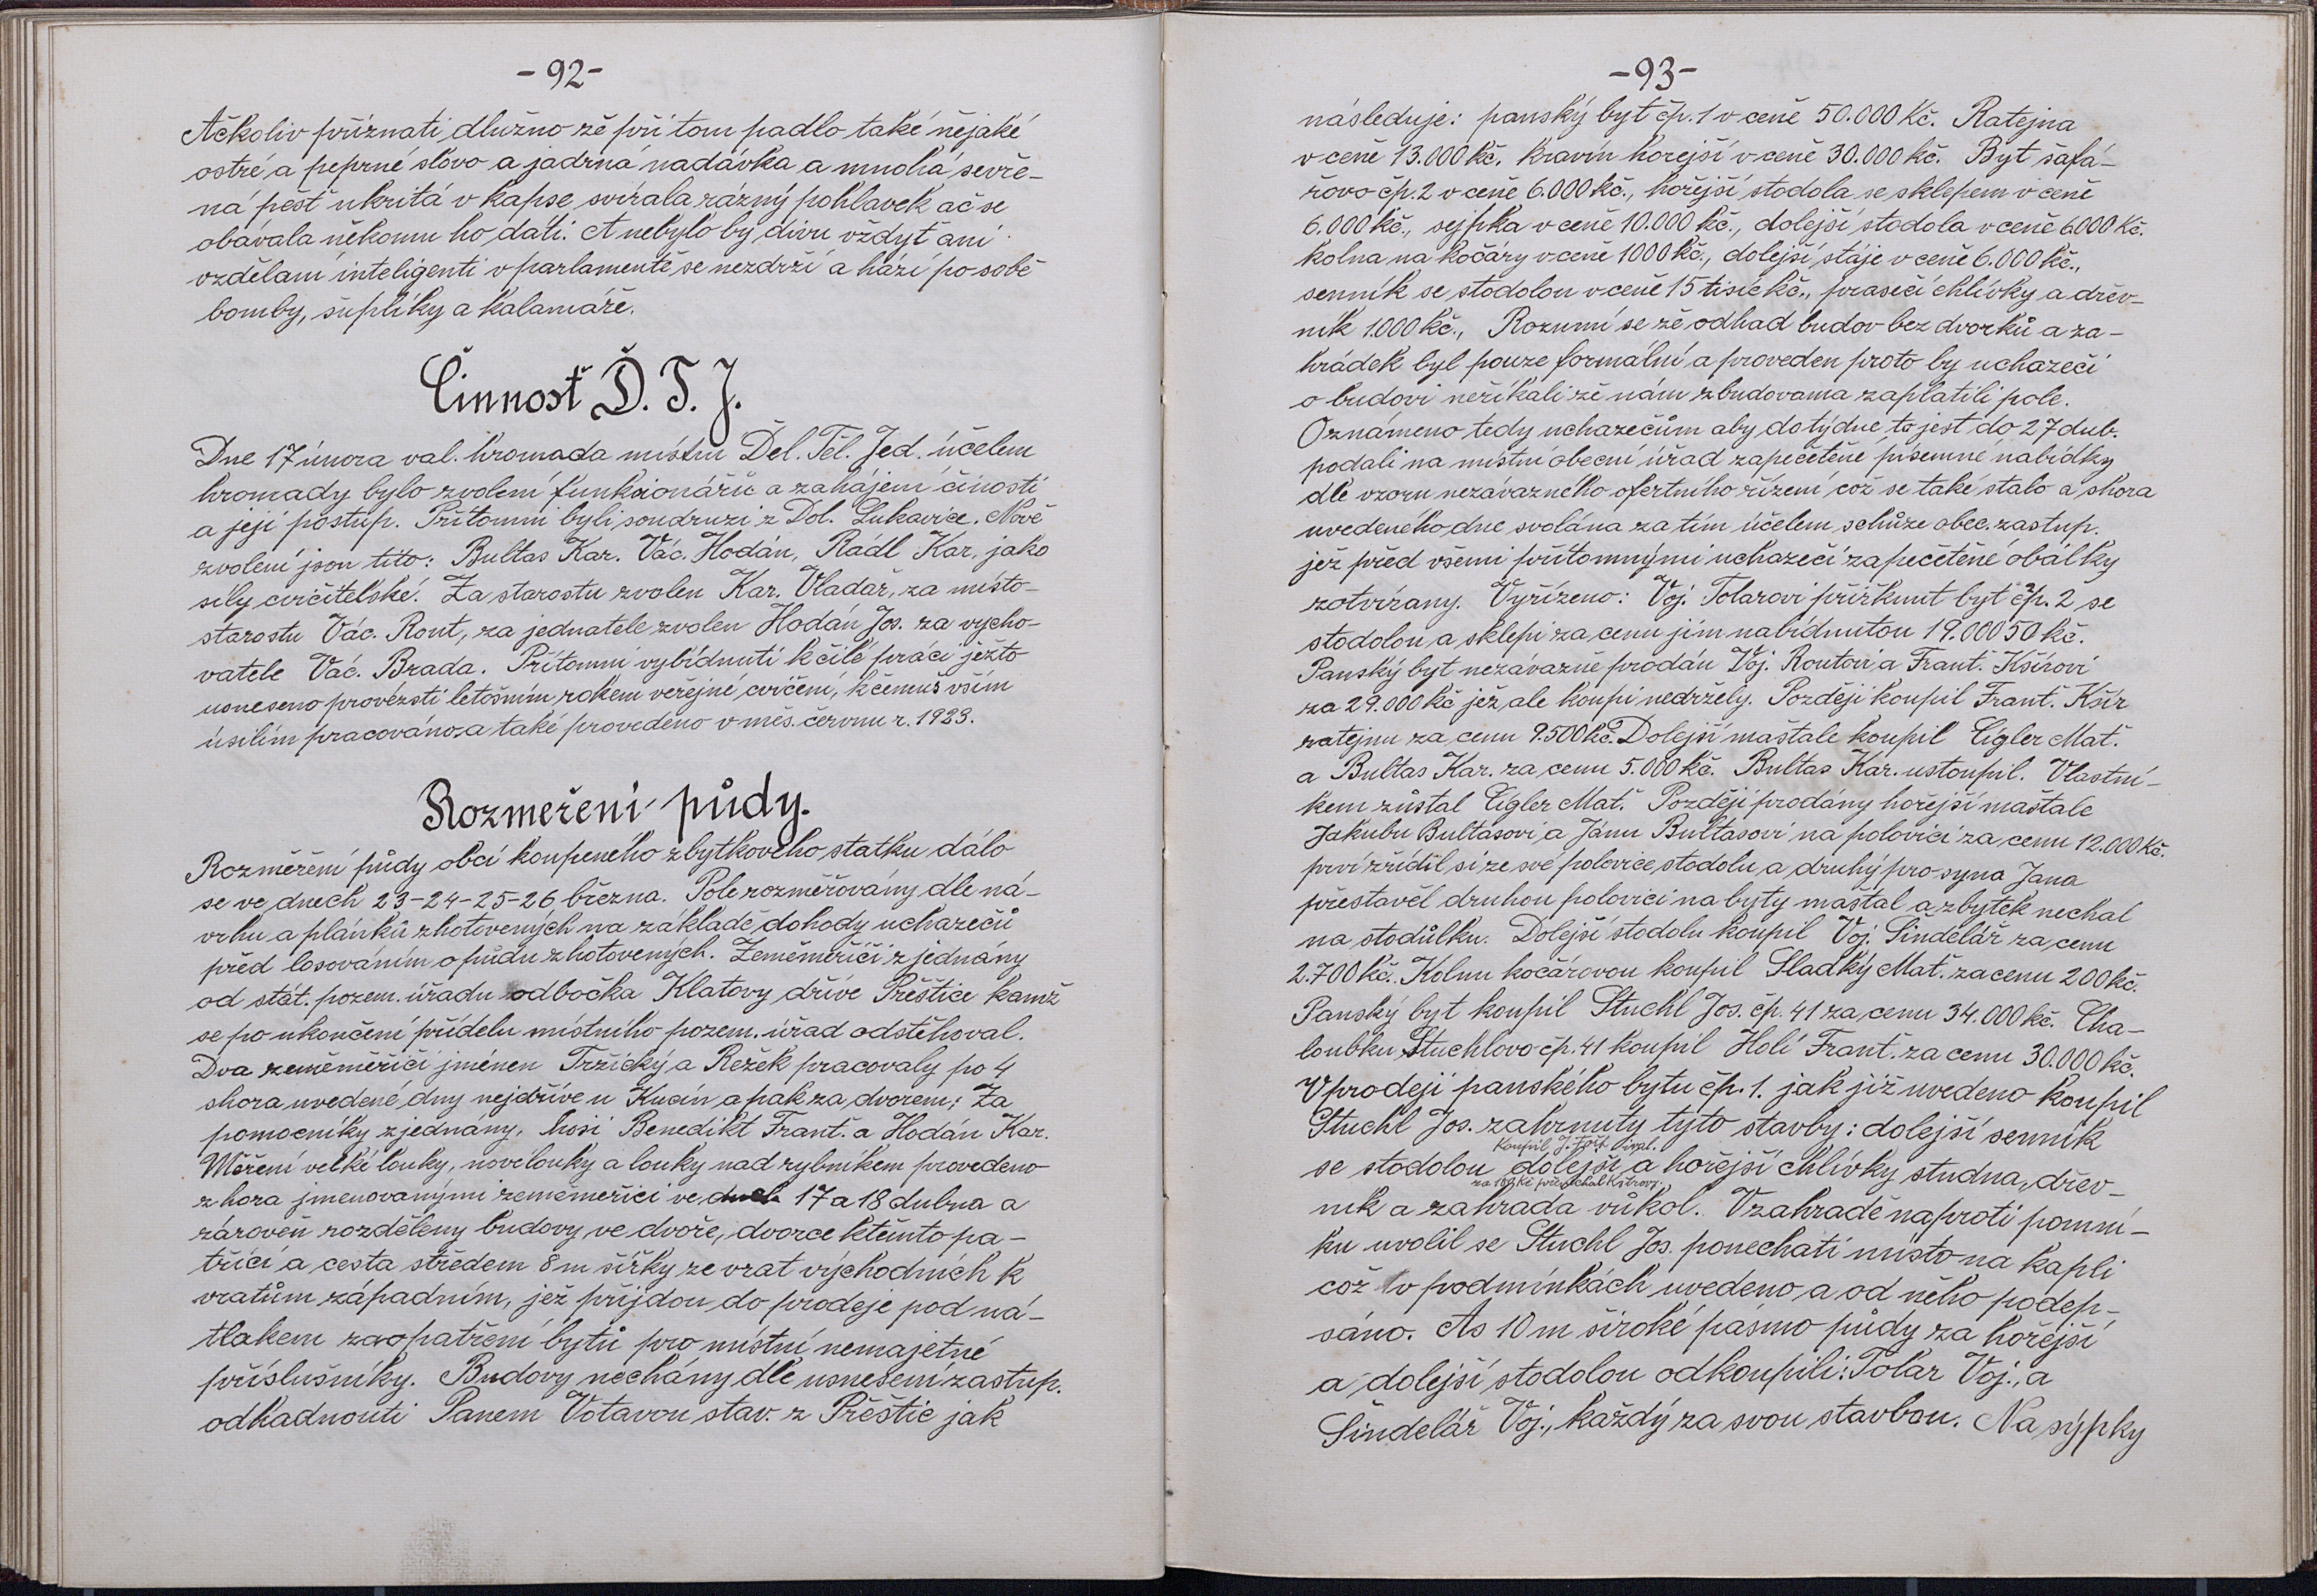 -92-
Ačkoliv přiznati dlužno že při tom padlo také nějaké
ostré a peprné slovo a jadrná nadávka a mnohá sevře-
ná pěst ukritá v kapse svírala rázný pohlavek ač se
obávala někomu ho dáti. A nebylo by divu vždyť ani
vzdělaní inteligenti v parlamentě se nezdrží a hází po sobě
bomby, šuplíky a kalamáře.
Činnosť Ď. T. J.
Dne 17 února val. hromada místní Děl. Těl. Jed. účelem
hromady bylo zvolení funkcionářů a zahájení činosti
a její postup. Přítomni byli soudruzi z Dol. Lukavice. Nově
zvolení jsou tito: Bultas Kar. Vác. Hodán, Rádl Kar, jako
síly cvičitelské. Za starostu zvolen Kar. Vladař, za místo-
starostu Vác. Rout, za jednatele zvolen Hodán Jos. za vycho-
vatele Vác. Brada. Přítomní vybídnuti k čilé práci ježto
usneseno provézsti letošním rokem veřejné cvičení, k čemuž vším
úsilím pracováno, a také provedeno v měs. červnu r. 1923.
Rozmeření půdy.
Rozměření půdy obcí koupeného zbytkového statku dálo
se ve dnech 23-24-25-26 března. Pole rozměřovány dle ná-
vrhu a plánků zhotovených na základě dohody uchazečů
před losováním o půdu zhotovených. Zeměměřiči zjednány
od stát. pozem. úřadu odbočka Klatovy dříve Přeštice kamž
se po ukončení přídelu místního pozem. úřad odstěhoval.
Dva zeměměřiči jménen Tržický a Režek pracovaly po 4
shora uvedené dny nejdříve u Kucín a pak za dvorem; Za
pomocníky zjednány, hosi Benedikt Frant. a Hodán Kar.
Měření velké louky, nové louky a louky nad rybníkem provedeno
z hora jmenovanými zeměmeřici ve dnech 17 a 18 dubna a
zároveň rozděleny budovy ve dvoře, dvorce ktěmto pa-
třící a cesta středem 8 m šířky ze vrat východních k
vratům západním, jež přijdou do prodeje pod ná-
tlakem zaopatření bytů pro místní nemajetné
příslušníky. Budovy nechány dle usnesení zastup.
odhadnouti Panem Votavou stav. z Přeštic jak
-93-
následuje: panský byt čp. 1 v ceně 50.000 Kč. Ratejna
v ceně 13.000 kč, kravín horejší v ceně 30.000 kč. Byt šafá-
řovo čp. 2 v ceně 6.000 kč., hořejší stodola se sklepem v ceně
6.000 kč., sejpka v ceně 10.000 kč., dolejší stodola v ceně 6000 Kč.
kolna na kočáry v ceně 1000 kč., dolejší stáje v ceně 6.000 kč.,
senník se stodolou v ceně 15 tisíc kč., prasečí chlívky a dřev-
ník 1.000 kč., Rozumí se že odhad budov bez dvorků a za-
hrádek byl pouze formální a proveden proto by uchazeči
o budovi neříkali že nám z budovama zaplatili pole.
Oznámeno tedy uchazečům aby do týdne to jest do 27 dub.
podali na místní obecní úřad zapečetěné písemné nabídky
dle vzoru nezávazného ofertního řízení což se také stalo a shora
uvedeného dne svolána za tím účelem schůze obec. zastup.
jež před všemi přítomnými uchazeči zapečetěné obálky
zotvírany. Vyřízeno: Voj. Tolarovi přiřknut byt čp. 2 se
stodolou a sklepí za cenu jím nabídnutou 19.000 50 kč.
Panský byt nezávazně prodán Voj. Routovi a Frant. Kšírovi
za 29.000 kč jež ale koupi nedržely. Později koupil Frant. Kšír
ratejnu za cenu 9.500 kč. Dolejší maštale koupil Cígler Mat.
a Bultas Kar. za cenu 5.000 kč. Bultas Kar. ustoupil. Vlastní-
kem zůstal Cígler Mat. Později prodány hořejší maštale
Jakubu Bultasovi a Jánu Bultasovi na polovici za cenu 12.000 kč.
prví zřídil si ze své polovice stodolu a druhý pro syna Jana
přestavěl druhou polovici na byty maštal a zbytek nechal
na stodůlku. Dolejší stodolu koupil Voj. Šindelář za cenu
2.700 kč. Kolnu kočárovou koupil Sladký Mat. za cenu 200 kč.
Panský byt koupil Stuchl Jos. čp. 41 za cenu 34.000 kč. Cha-
loubku Stuchlovo čp. 41 koupil Holí Frant. za cenu 30.000 kč.
V prodeji panského bytu čp. 1. jak již uvedeno koupil
Stuchl Jos. zahrnuty tyto stavby: dolejší senník
Koupil J.
se stodolou dolejší a hořejší chlívky studna, dřev-
za 100 kč přenechal
ník a zahrada vůkol. V zahradě naproti pomní-
ku uvolil se Stuchl Jos. ponechati místo na kapli
což v podmínkách uvedeno a od něho podep-
sáno. As 10 m široké pásmo půdy za hořejší
a dolejší stodolou odkoupili: Tolar Voj., a
Šindelář Voj., každý za svou stavbou. Na sýpky